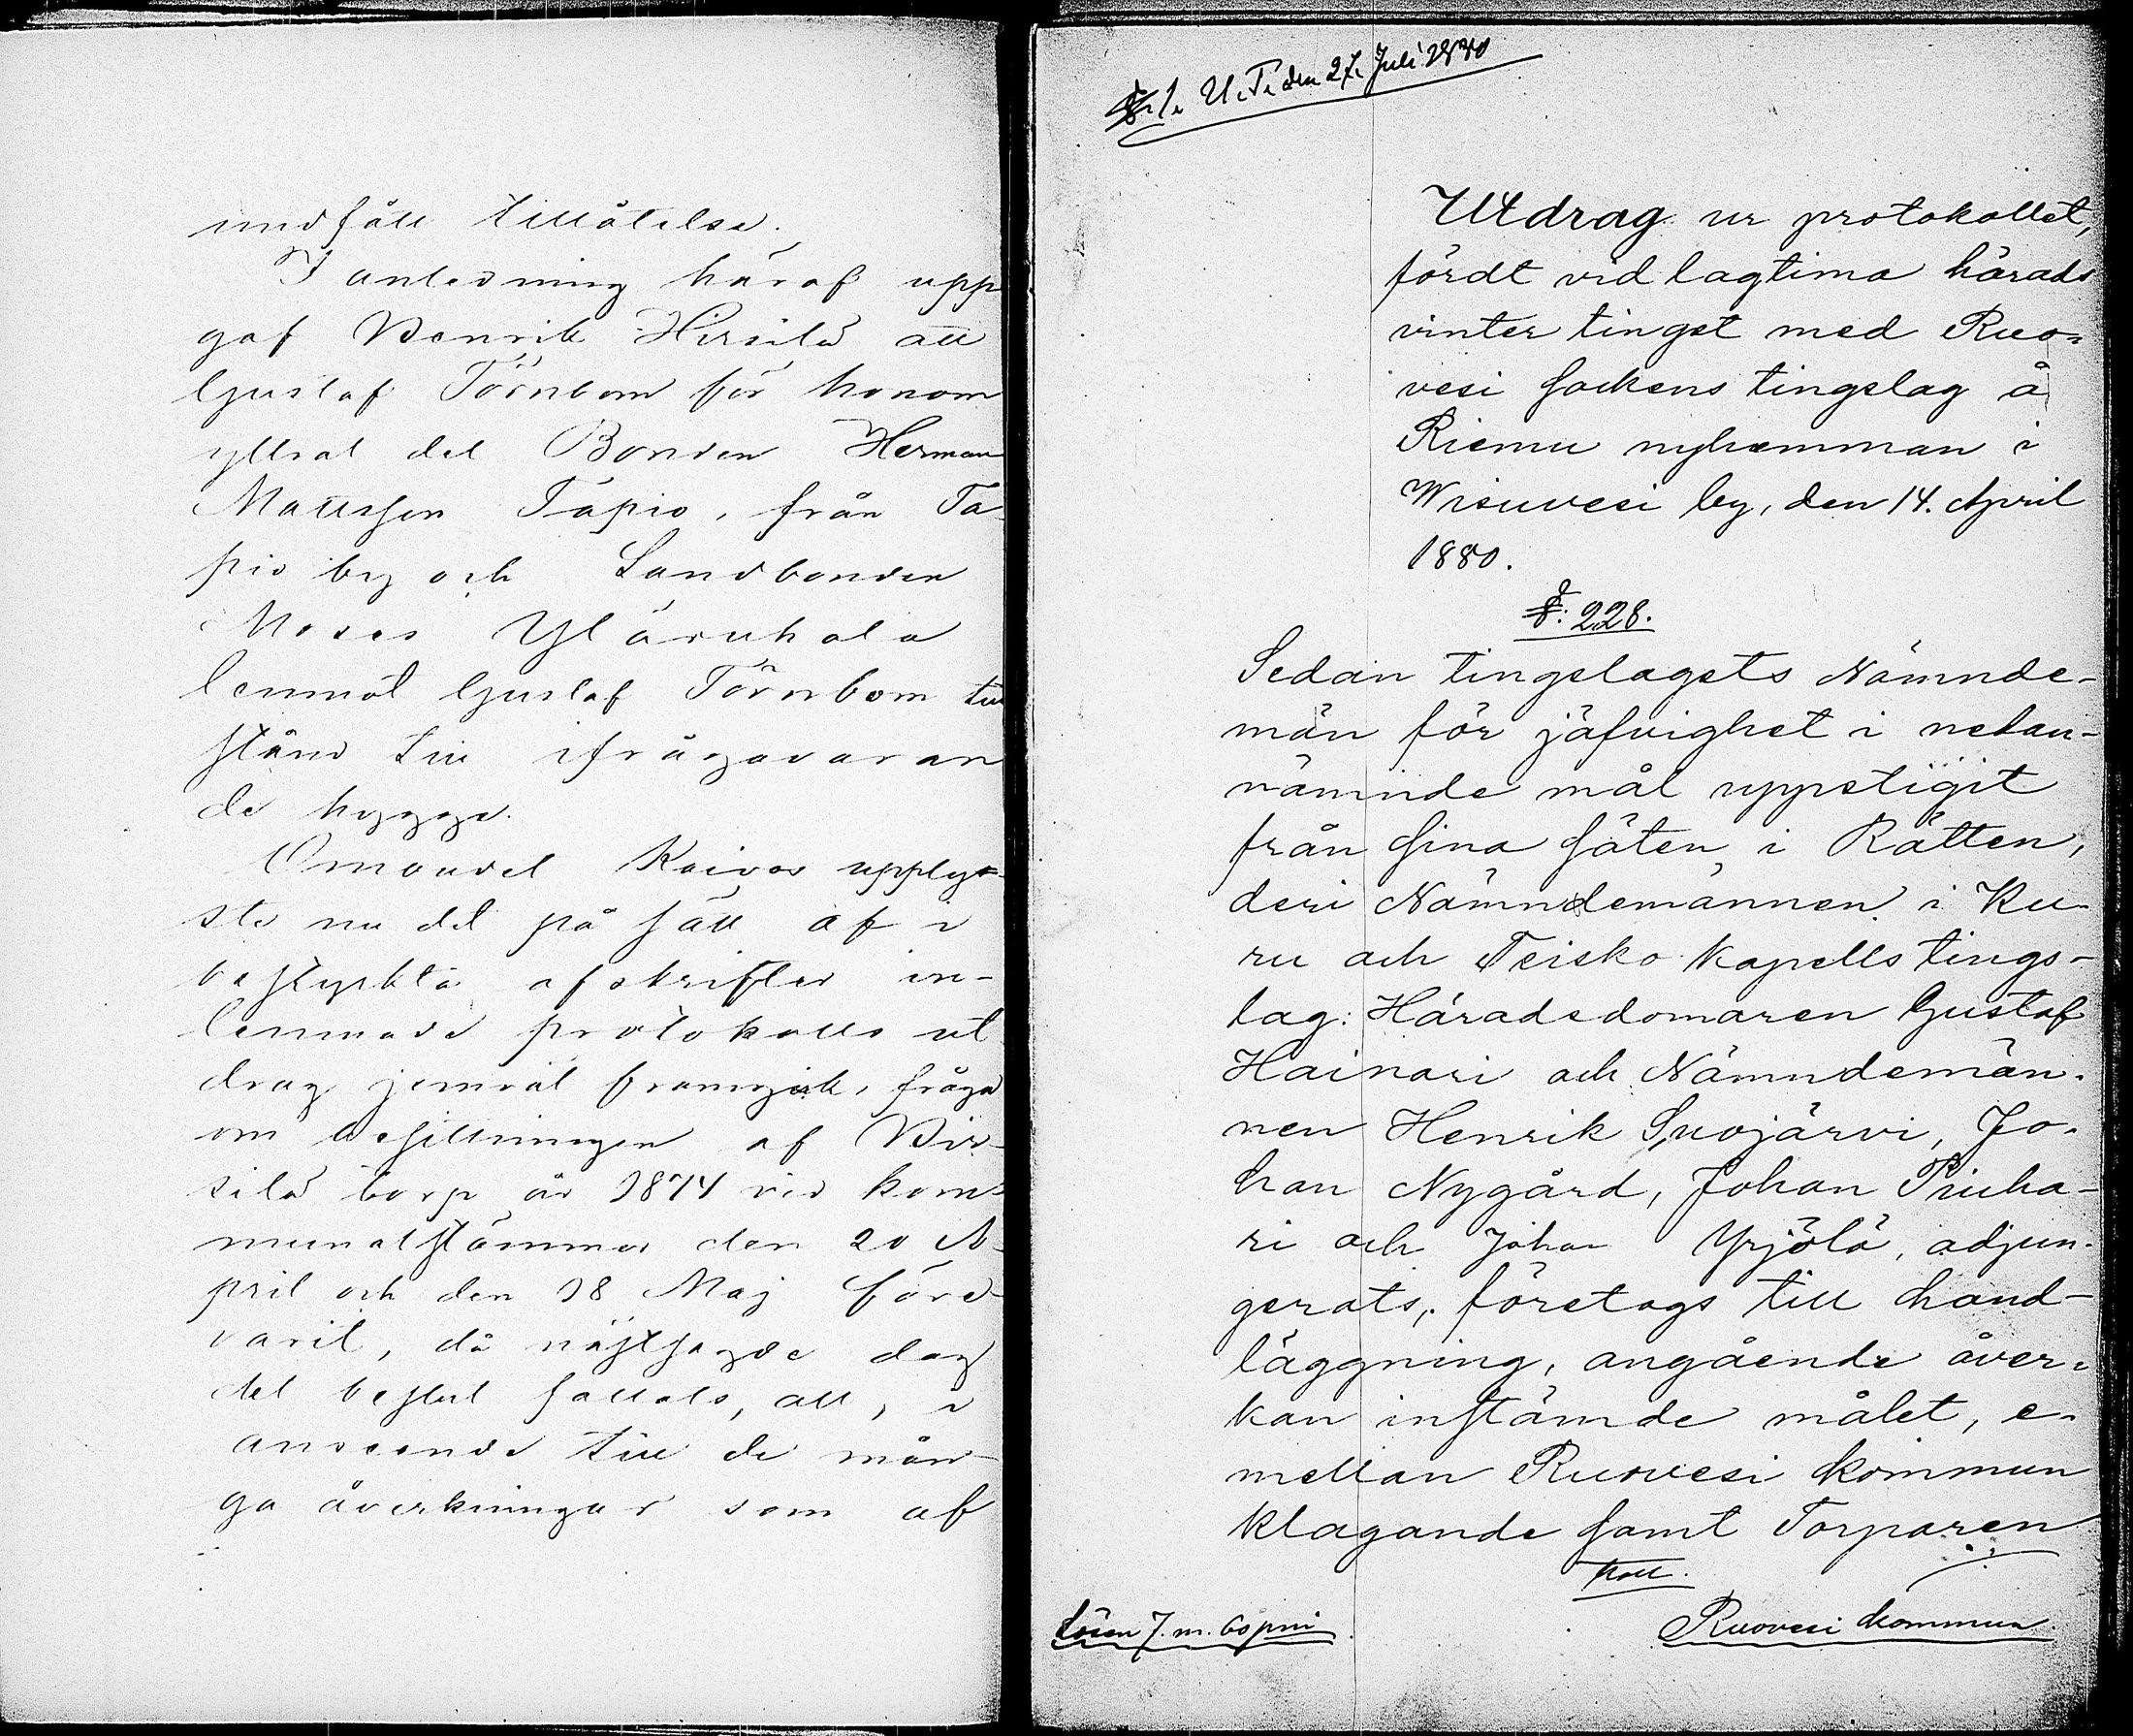 undfått tillåtelse.
I anledning häraf upp
gaf Henrik Hirsilä att
Gustaf Törnbom för honom
yttrat det Bonden Herman
Mattsson Tapio, från Ta-
pio by och Landbonden
Moses Yläruhala
lemnat Gustaf Törnbom till
stånd till ifrågavaran
de hygge.
Ombudet Kaivos upplys-
te nu det på sätt af i
bestyrkta afskrifter in-
lemnade protokolls ut
drag jemväl framgick, fråga
om besittningen af Hir-
silä torp år 1874 vid kom-
munalstämmor den 20 A-
pril och den 18 Maj före-
varit, då nästsagde dag
det beslut fattats, att, i
anseende till de mån-
ga åverkningar som af
§ 1. U. T. den 27. Juli 1880
Utdrag ur protokollet,
fördt vid lagtima härads
vinter tinget med Ruo-
vesi sockens tingslag å
Riemu nyhemman i
Wisuvesi by, den 14. April
1880.
§: 228.
Sedan tingslagets Nämnde-
män för jäfvighet i nedan-
nämnde mål uppstigit
från sina säten i Rätten,
deri Nämndemännen i Ku-
ru och Teisko Kapells tings-
lag: Häradsdomaren Gustaf
Hainari och Nämndemän-
nen Henrik Suojärvi, Jo-
han Nygård, Johan Piuha-
ri och Johan Yrjölä, adjun-
gerats, företogs till hand-
läggning, angående åver-
kan instämde målet, e-
mellan Ruovesi kommun
klagande samt Torparen
Lösen 7. m. 60 pni
Ruovesi kommun.